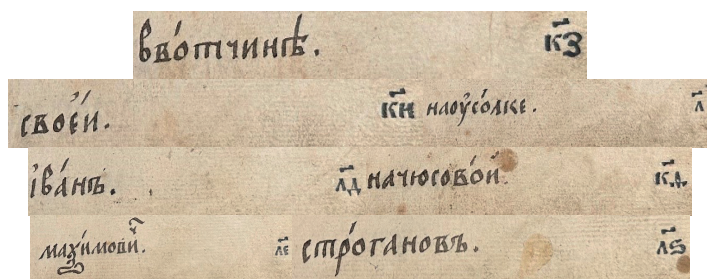 въо́тчинѣ. к҃з
свое́й. к҃и наоу҆со́лке. л҃
і҆ва́нъ. л҃д начюсово́й к҃д.
маѯи́мови́ч. л҃е стро́гановъ. л҃ѕ